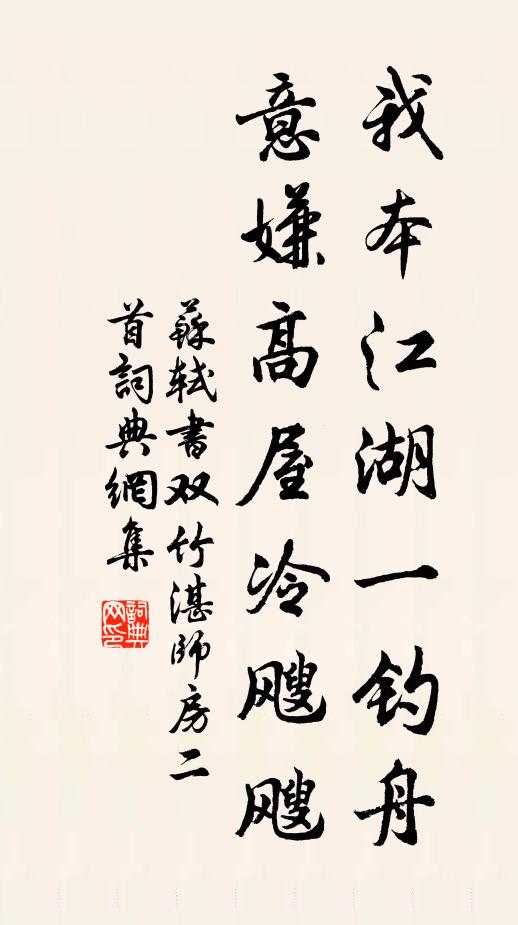 我本江湖一钓舟
意嫌高屋冷飕飕
蘇軾書双竹湛師房二
首詞典網集
詞典
网印